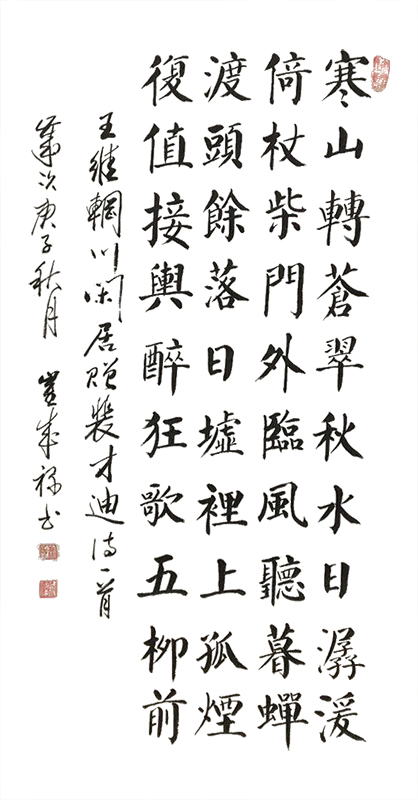 寒山轉蒼翠秋水日潺湲
倚杖柴門外臨風聽暮蟬
渡頭餘落日墟裡上孤煙
復值接輿醉狂歌五柳前
王維輞川閑居贈裴才迪詩一首
歲次庚子秋月 書